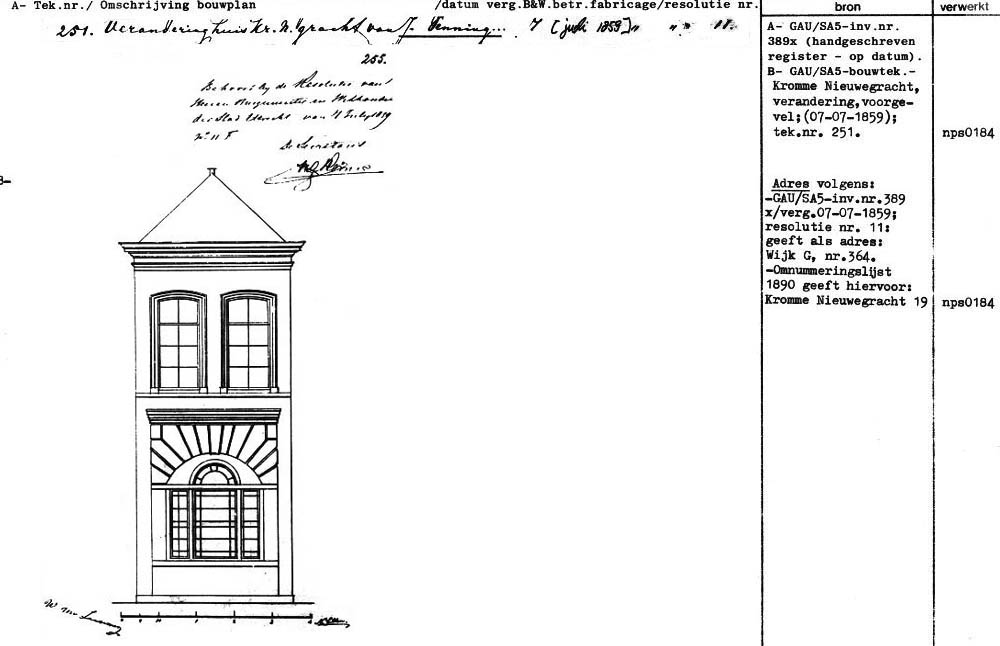 A- Tek.nr./ Omschrijving bouwplan /datum verg.B&W.betr.fabricage/resolutie nr.
bron
verwerkt
251. Verandering huis Kr. N. gracht van J. 7 [juli 1859] " " " 11.
255.
Behoort bij de Resolutie van
Heeren Burgemeester en Wethouders
der Stad Utrecht van 7 July 1859
No 11 F
De Secretaris
B-
A- GAU/SA5-inv.nr.
389x (handgeschreven
register - op datum).
B- GAU/SA5-bouwtek.-
Kromme Nieuwegracht,
verandering,voorge-
vel;(07-07-1859);
tek.nr. 251.
nps0184
Adres volgens:
-GAU/SA5-inv.nr.389
x/verg.07-07-1859;
resolutie nr. 11:
geeft als adres:
Wijk G, nr.364.
-Omnummeringslijst
1890 geeft hiervoor:
Kromme Nieuwegracht 19
nps0184